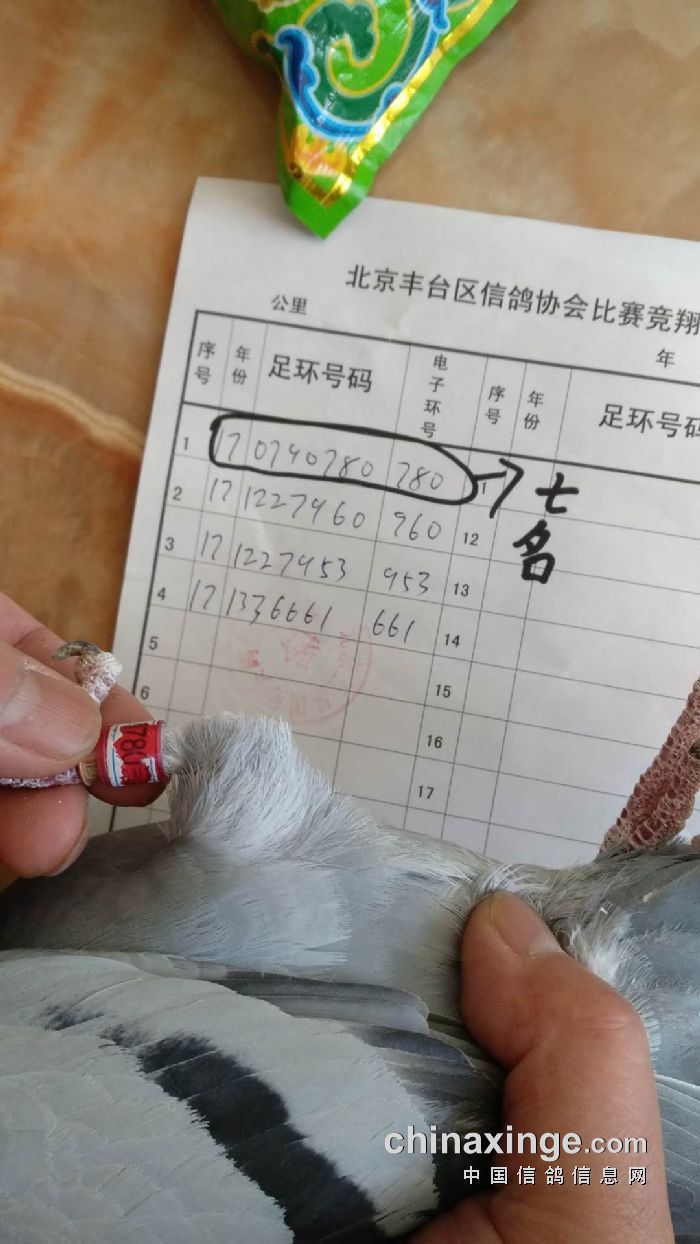 北京丰台区信鸽协会比赛竞翔
公里 年
序号 年份 足环号码 电子环号 序号 年份 足环号码
1 17 0740780 780 11 → 七名
2 17 1227960 960 12
3 17 1227953 953 13
4 17 1336661 661 14
5 15
6 16
17
780
chinaxinge.com
中国信鸽信息网